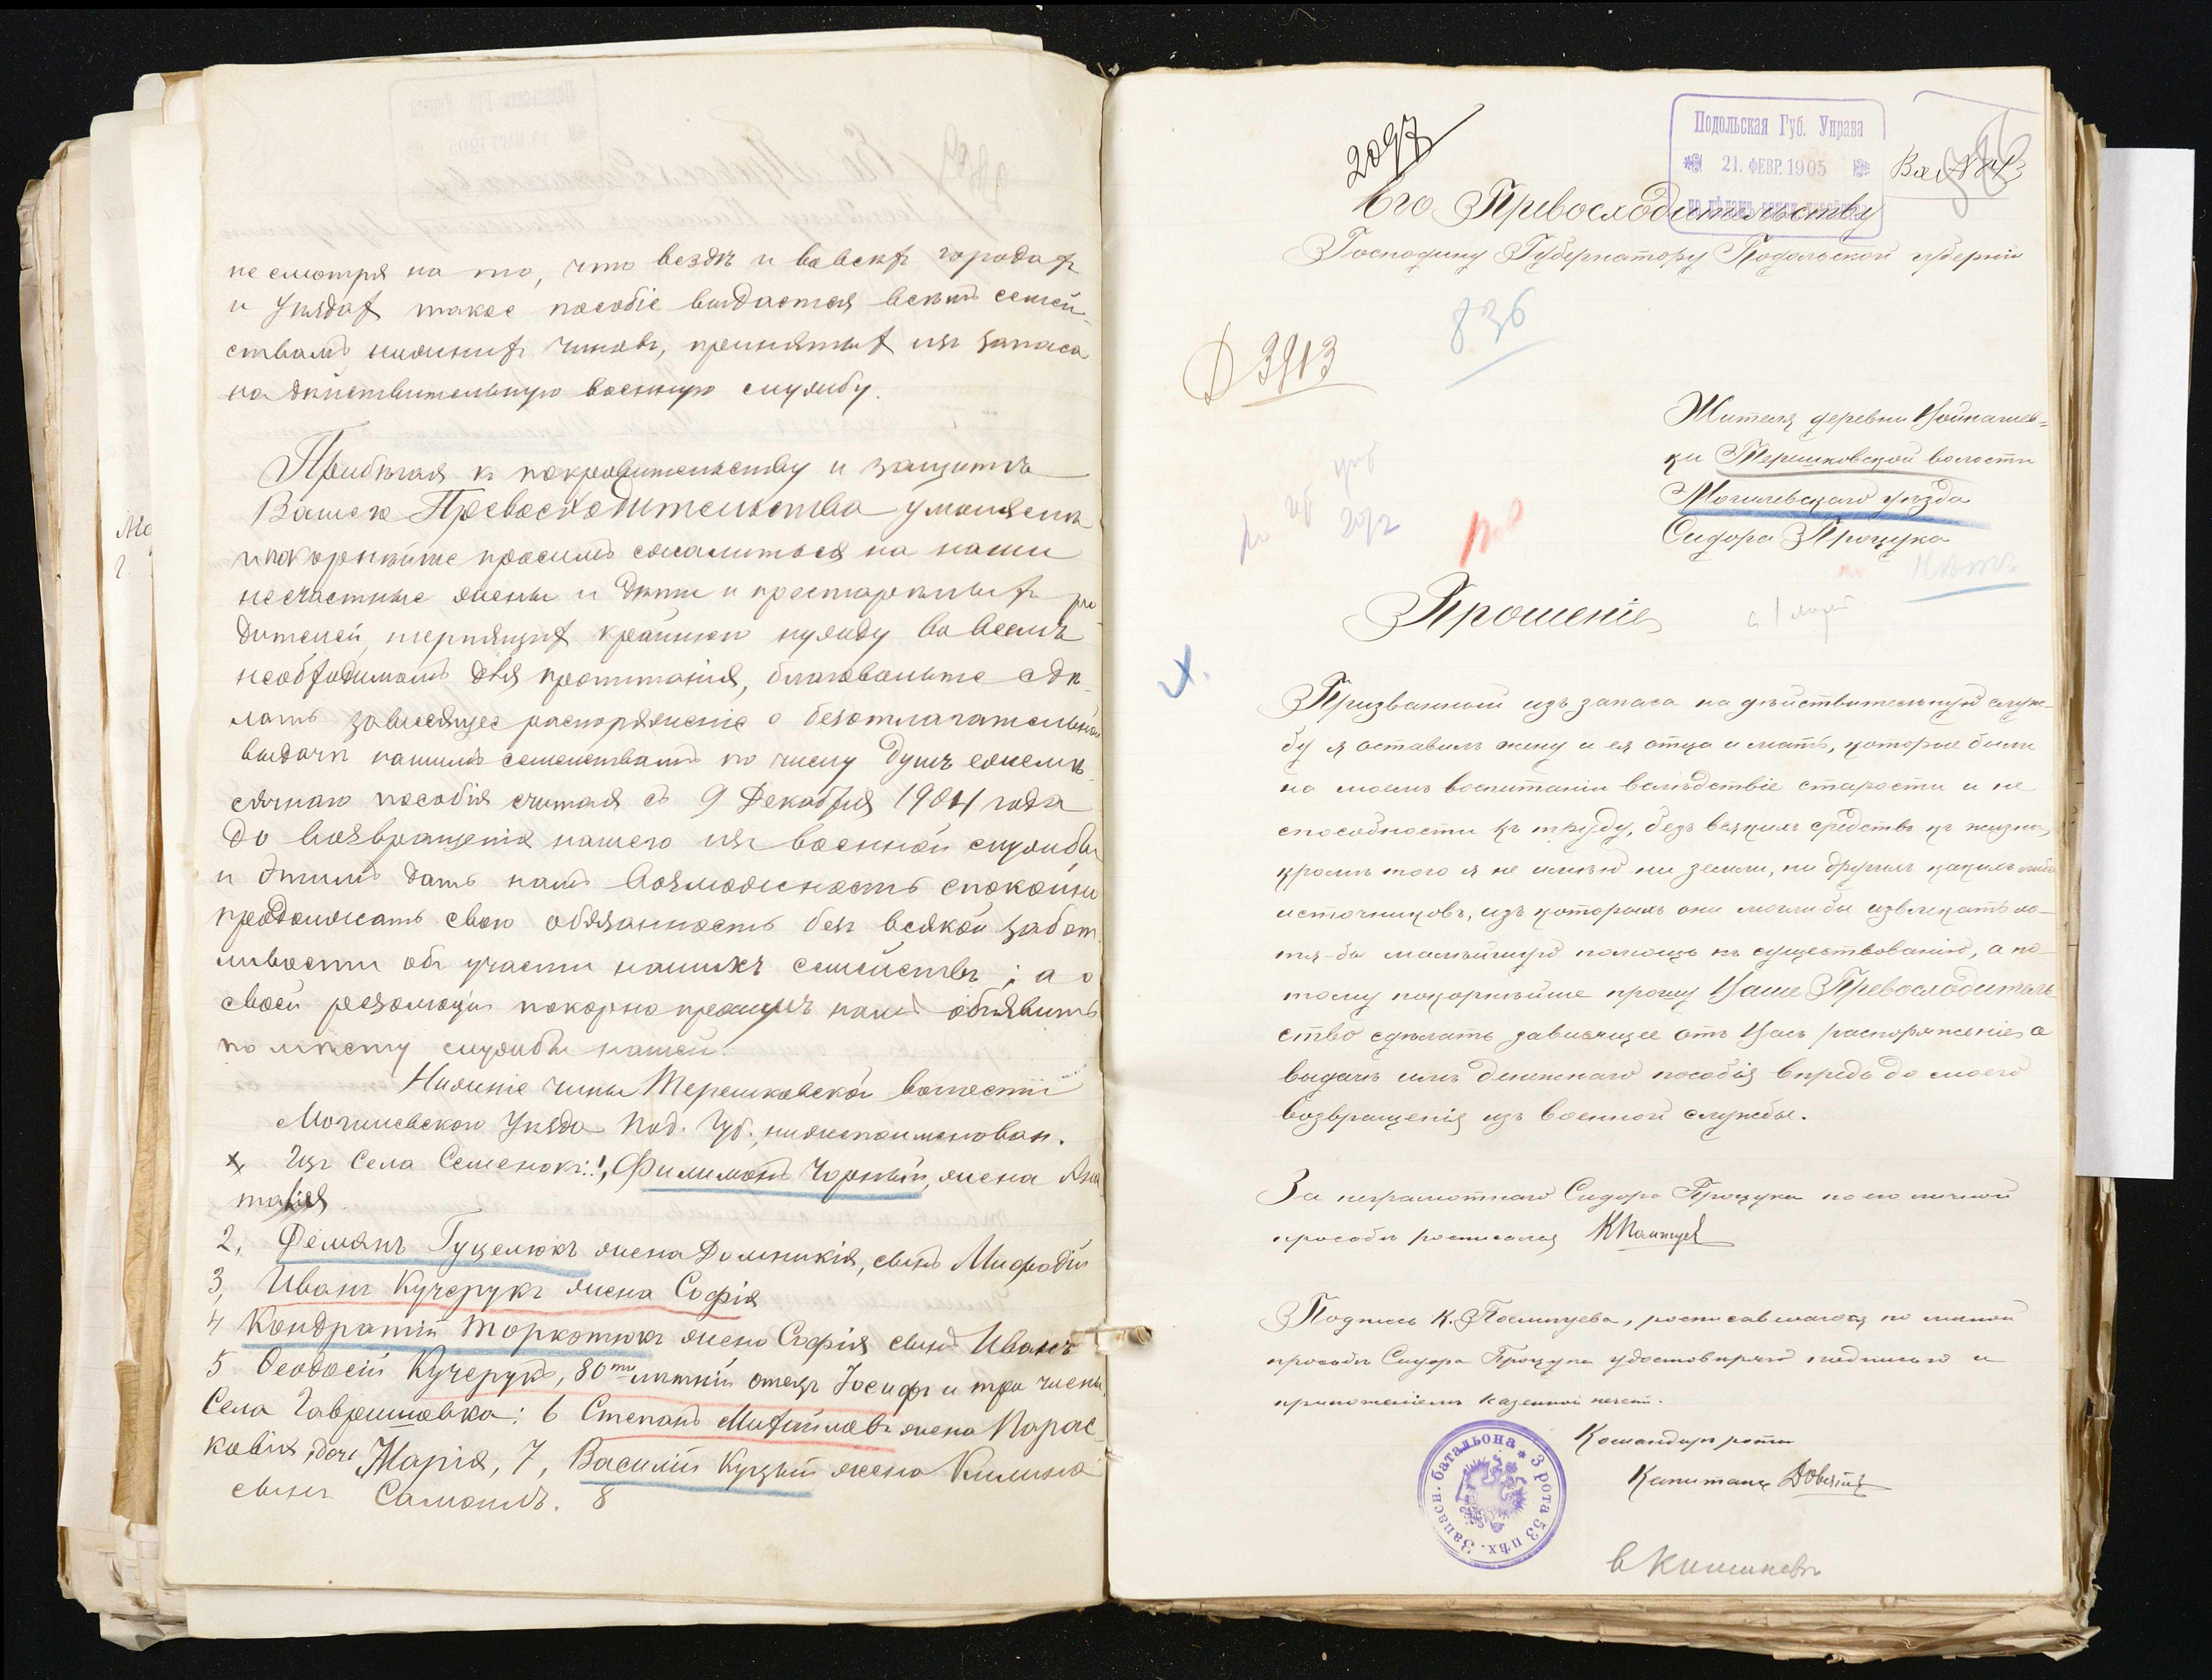 не смотря на то, что вездѣ и вовсѣхъ городахъ
и Уѣздах такое пособіе выдается всѣмъ семей-
ствамъ нижнихъ чиновъ, принятых изъ запаса
на дѣйствительную военную службу.
Прибѣгая к покровительству и защитѣ
Вашего Превосходительства умоляемъ
и покорнѣйше просимъ сжалиться на наши
несчастные жены и дѣти и престарѣлыхъ ро
дителей, терпящих крайнюю нужду во всемъ
необходимомъ для пропитанія, благоволите сдѣ-
лать зависящее распоряженіе о безотлагательной
выдачѣ нашимъ семействамъ по числу душъ ежемѣ-
сячнаго пособія считая съ 9 Декабря 1904 года
до возвращенія нашего изъ военной службы
и этимъ дать намъ возможность спокойно
продолжать свою обязанность безъ всякой забот
ливости объ участи нашихъ семействъ; а о
своей резолюціи покорно просимъ намъ объявить
по мѣсту службы нашей.
Нижніе чины Терешковской волости
Могилевского Уѣзда Под. Губ., нижепоименован.
Изъ Села Семенокъ: 1, Филимонъ Чорный, жена
2, Демянъ Гуцелюкъ жена Домникія, сынъ Мифодій
3, Иванъ Кучерукъ жена Софія
4 Кондратій Торкотюкъ жена Софія сынъ Иванъ
5 Феодосій Кучерукъ, 80ти лѣтній отецъ Іосифъ и три члены.
Села Гавришовка: 6 Степанъ Михайловъ жена Парас-
ковія, дочь Марія, 7, Василій Куцый жена Килина
сынъ Самоилъ. 8
2097
Подольская Губ. Управа
21. ФЕВР. 1905
Вх. №
Его Превосходительству
Господину Губернатору Подольской губерніи
836
3913
Жителя деревни Войнашев-
ки Терешковской волости
Могилевскаго уѣзда
Сидора Процука
Прошеніе
Призванный изъ запаса на дѣйствительную служ-
бу я оставилъ жену и ея отца и мать, которые были
на моемъ воспитаніи вслѣдствіе старости и не
способности къ труду, безъ всякихъ средствъ къ жизни,
кромѣ того я не имѣю ни земли, ни другихъ какихъ либо
источниковъ, изъ которыхъ они могли бы извлекать хо-
тя-бы малѣйшую помощь къ существованію, а по
тому покорнѣйше прошу Ваше Превосходитель
ство сдѣлать зависящее отъ Васъ распоряженіе о
выдачѣ имъ денежнаго пособія впредь до моего
возвращенія изъ военной службы.
За неграмотнаго Сидора Процука по его личной
прозьбѣ росписался
Подпись К. росписавшагося по личной
прозьбѣ Сидора Процука удостовѣряю подписью и
приложеніемъ казенной печати.
Командиръ роты
Капитанъ
3 рота 53 пѣх. Запасн. батальона
в Кишиневъ